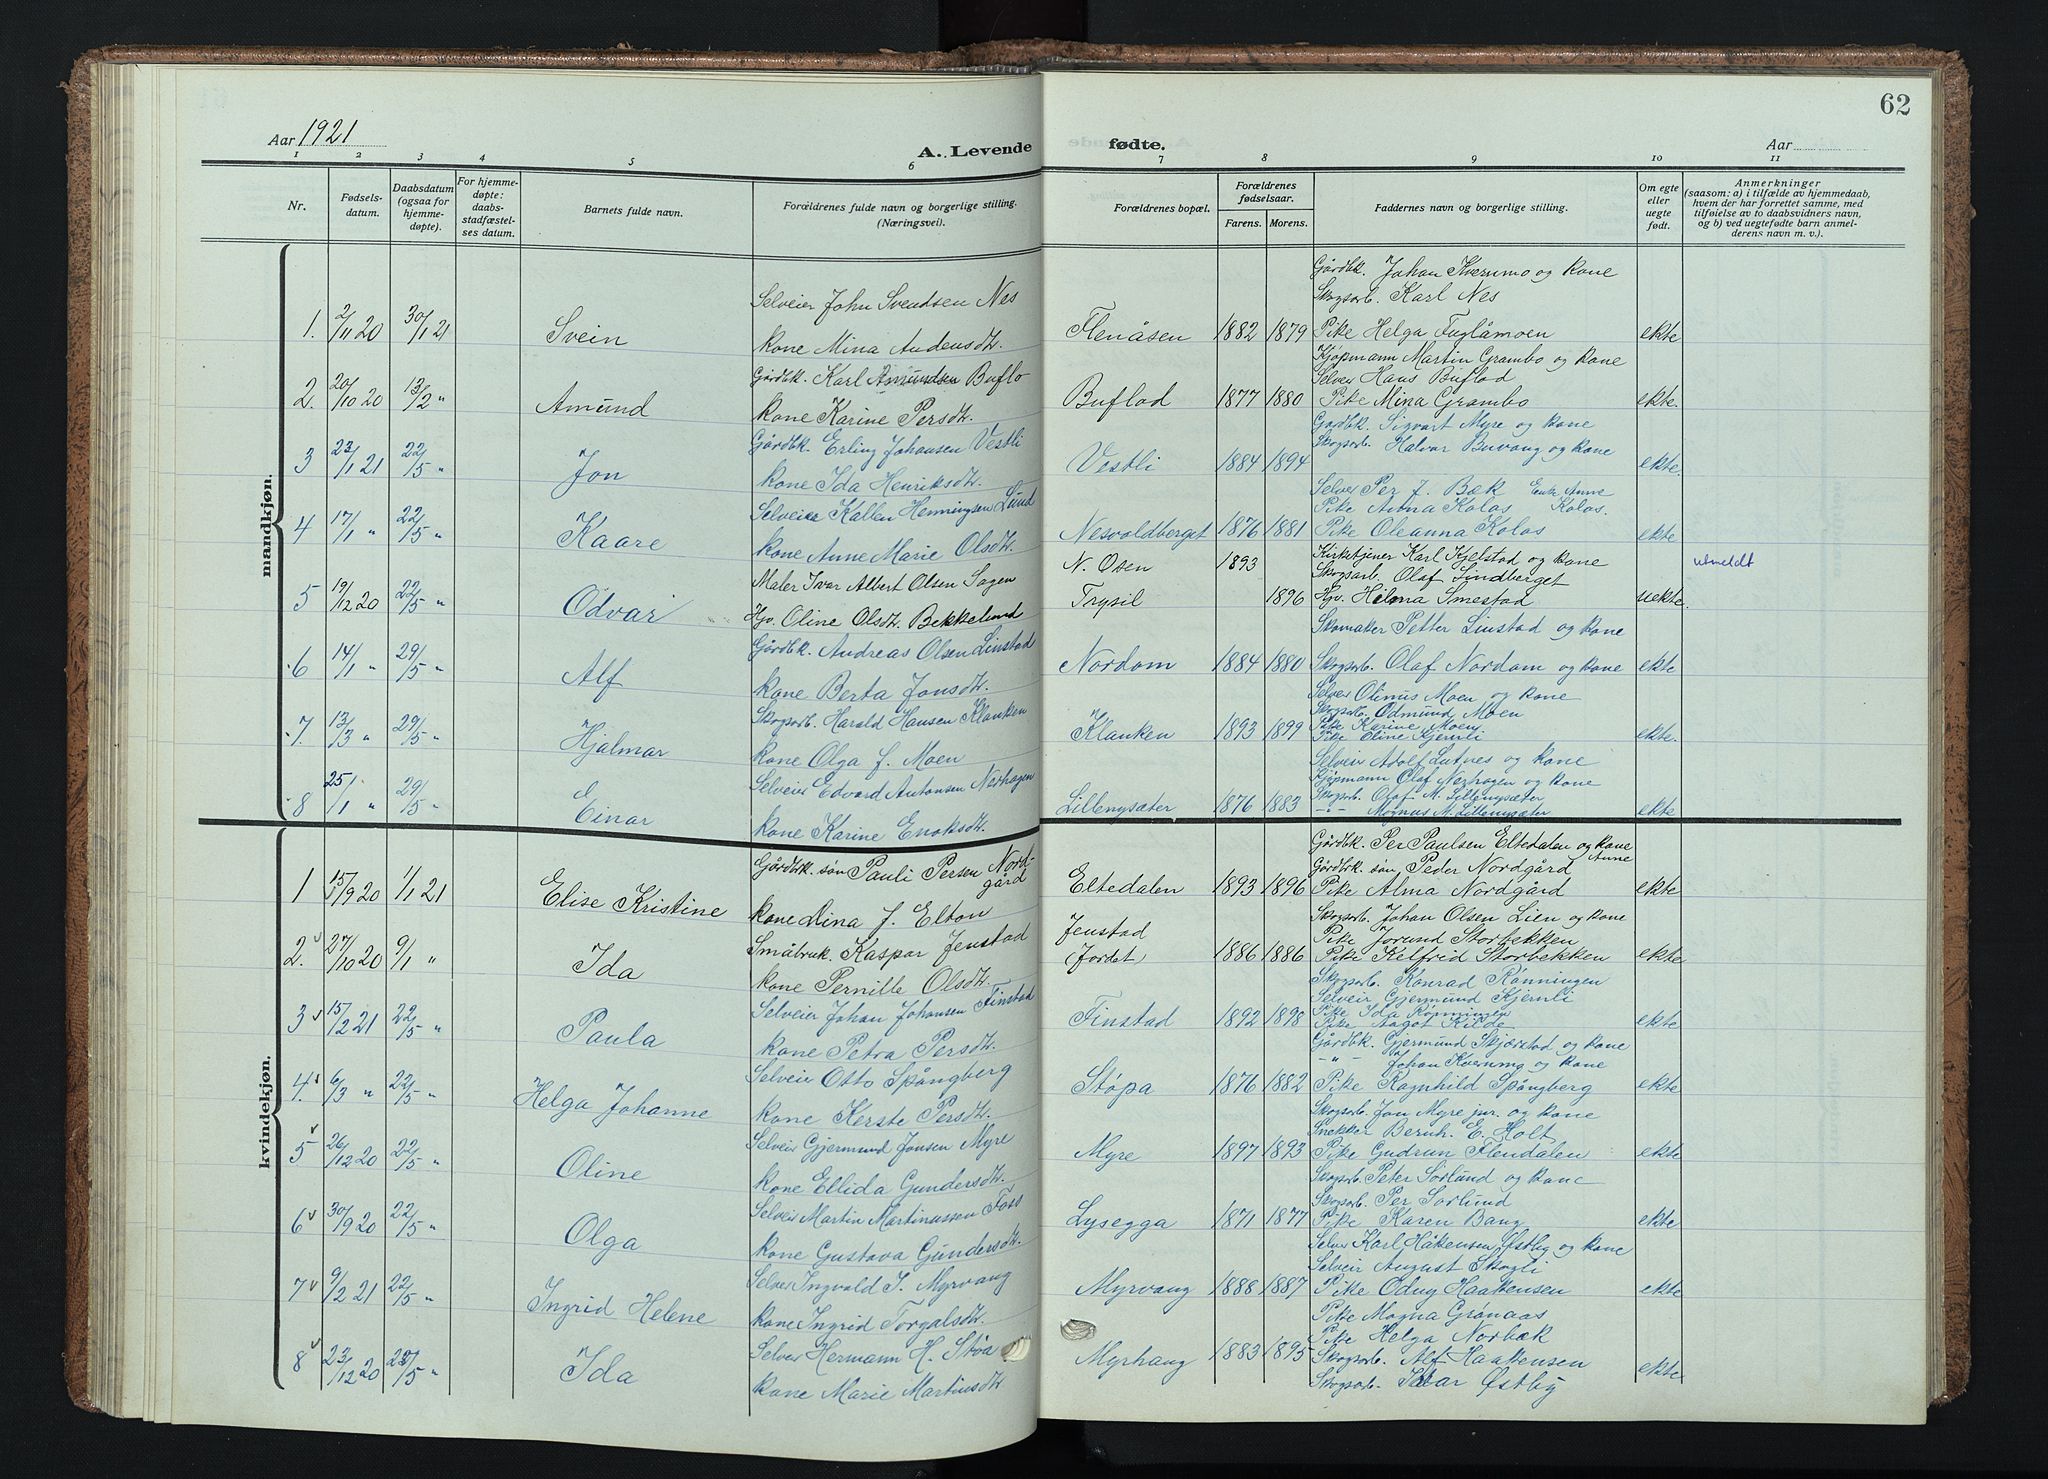 62
Aar 1921
A. Levende fødte.
Aar
1 2 3 4 5 6 7 8 9 10 11
Nr.
Fødsels-
datum.
Daabsdatum
(ogsaa for
hjemme-
døpte).
For hjemme-
døpte:
daabs-
stadfæstel-
ses datum.
Barnets fulde navn.
Forældrenes fulde navn og borgerlige stilling.
(Næringsvei).
Forældrenes bopæl.
Forældrenes
fødselsaar.
Farens. Morens.
Faddernes navn og borgerlige stilling.
Om egte
eller
uegte
født.
Anmerkninger
(saasom: a) i tilfælde av hjemmedaab,
hvem der har forrettet samme, med
tilføielse av to daabsvidners navn,
og b) ved uegtefødte barn anmel-
derens navn m. v.).
mandkjøn.
1. 2/11 20 30/1 21 Svein
Selveier John Svendsen Nes
kone Mina Andensdtr.
Flenåsen 1882 1879
Gårdbk. Johan Kverumo og kone
Skogsarb. Karl Nes
Pike Helga Fuglåmoen
ekte
2. 20/10 20 13/2 " Amund
Gårdbk. Karl Amundsen Buflo
kone Karine Persdtr.
Buflod 1877 1880
Kjøpmann Martin Grambo og kone
Selveier Hans Buflod
Pike Mina Grambo
ekte.
3 23/1 21 22/5 " Jon
Gårdbk. Erling Johansen Vestli
kone Ida Henriksdtr.
Vestli 1884 1894
Gårdbk. Sigvart Myre og kone
Skogsarb. Halvar Buvang og kone
ekte.
4 17/1 " 22/5 " Kaare
Selveier Kallen Henningsen Lund
kone Anne Marie Olsdtr.
Nesvoldberget 1876 1881
Selveier Per J. Bæk Enke Anne
Pike Anna Kolos Kolos.
Pike Oleanna Kolos
ekte
5 19/12 20 22/5 " Odvar
Maler Ivar Albert Olsen Sagen
Hjv. Oline Olsdtr. Bekkelund
N. Osen 1893
Trysil 1896
Kirketjener Karl Kjelstad og kone
Skogsarb. Olaf Lindberget
Hjv. Hilma Smestad
uekte.
utmeldt
6 14/1 " 29/5 " Alf
Gårdbk. Andreas Olsen Linstad
kone Berta Jonsdtr.
Nordom 1884 1880
Skomaker Petter Linstad og kone
Skogsarb. Olaf Nordom og kone
ekte
7. 13/3 " 29/5 " Hjalmar
Skogsarb. Harald Hansen Klanken
kone Olga J. Moen
Klanken 1893 1899
Selveier Olinus Moen og kone
Skogsarb. Odmund Moen
Pike Karine Moen
Pike Oline Kjernli
ekte.
8 25/1 " 29/5 " Einar
Selveier Edvard Antonsen Nerhagen
kone Karine Enoksdtr.
Lillenysæter 1876 1883
Selveier Adolf Lutnes og kone
Kjøpmann Olaf Nerhagen og kone
Skogsarb. Olaf M. Lillenysæter
-"- Magnus M. Lillenysæter
ekte
kvindekjøn.
1 15/9 20 1/1 21 Elise Kristine
Gårdbrk. søn Pauli Persen Nord-
gård
kone Dina J. Elton
Eltedalen 1893 1896
Gårdbk. Per Paulsen Eltedalen og kone
Gårdbk. søn Peder Nordgård Anne
Pike Alma Nordgård
ekte
2. 27/10 20 9/1 " Ida
Småbruk. Kaspar Jenstad
kone Pernille Olsdtr.
Jenstad
Jordet 1886 1886
Skogsarb. Johan Olsen Lien og kone
Pike Jorund Storbekken
Pike Kelfrid Storbekken
ekte
3 15/2 21 22/5 " Paula
Selveier Johan Johansen Finstad
kone Petra Persdtr.
Finstad 1892 1898
Skogsarb. Konrad Rønningen
Selveir Gjermund Kjernli
Pike Ida Rønningen
Pike Aagot Kilde
ekte
4. 6/3 " 22/5 " Helga Johanne
Selveier Otto Spångberg
kone Kerste Persdtr.
Støpa 1876 1882
Gårdbk. Gjermund Skjærstad og kone
-"- Johan Kverumo og kone
Pike Ragnhild Spångberg
ekte
5 26/12 20 22/5 " Oline
Selveir Gjermund Jonsen Myre
kone Ellida Gundersdtr.
Myre 1897 1893
Skogsarb. Jon Myre jnr. og kone
Snekker Bernh. E. Holt
Pike Gudrun Flendalen
ekte
6 30/9 20 22/5 " Olga
Selveir Martin Martinussen Foss
kone Gustava Gundersdtr.
Lysegga 1871 1877
Skogsarb. Peter Sørlund og kone
Skogsarb. Per Sørlund
Pike Karen Bang
ekte
7 9/2 21 22/5 " Ingrid Helene
Selveir Ingvald I. Myrvang
kone Ingrid Torgalsdtr.
Myrvang 1888 1887
Selveir Karl Håkensen Østby og kone
Selveir August Skogli
Pike Odny Haakensen
ekte
8 23/12 20 22/5 " Ida
Selveir Hermann H. Støa
kone Marie Martinsdtr
Myrhaug 1883 1895
Pike Magna Grønaas
Pike Helga Norbæk
Skogsarb. Alf Haakensen
Skogsarb. Ivar Østby
ekte